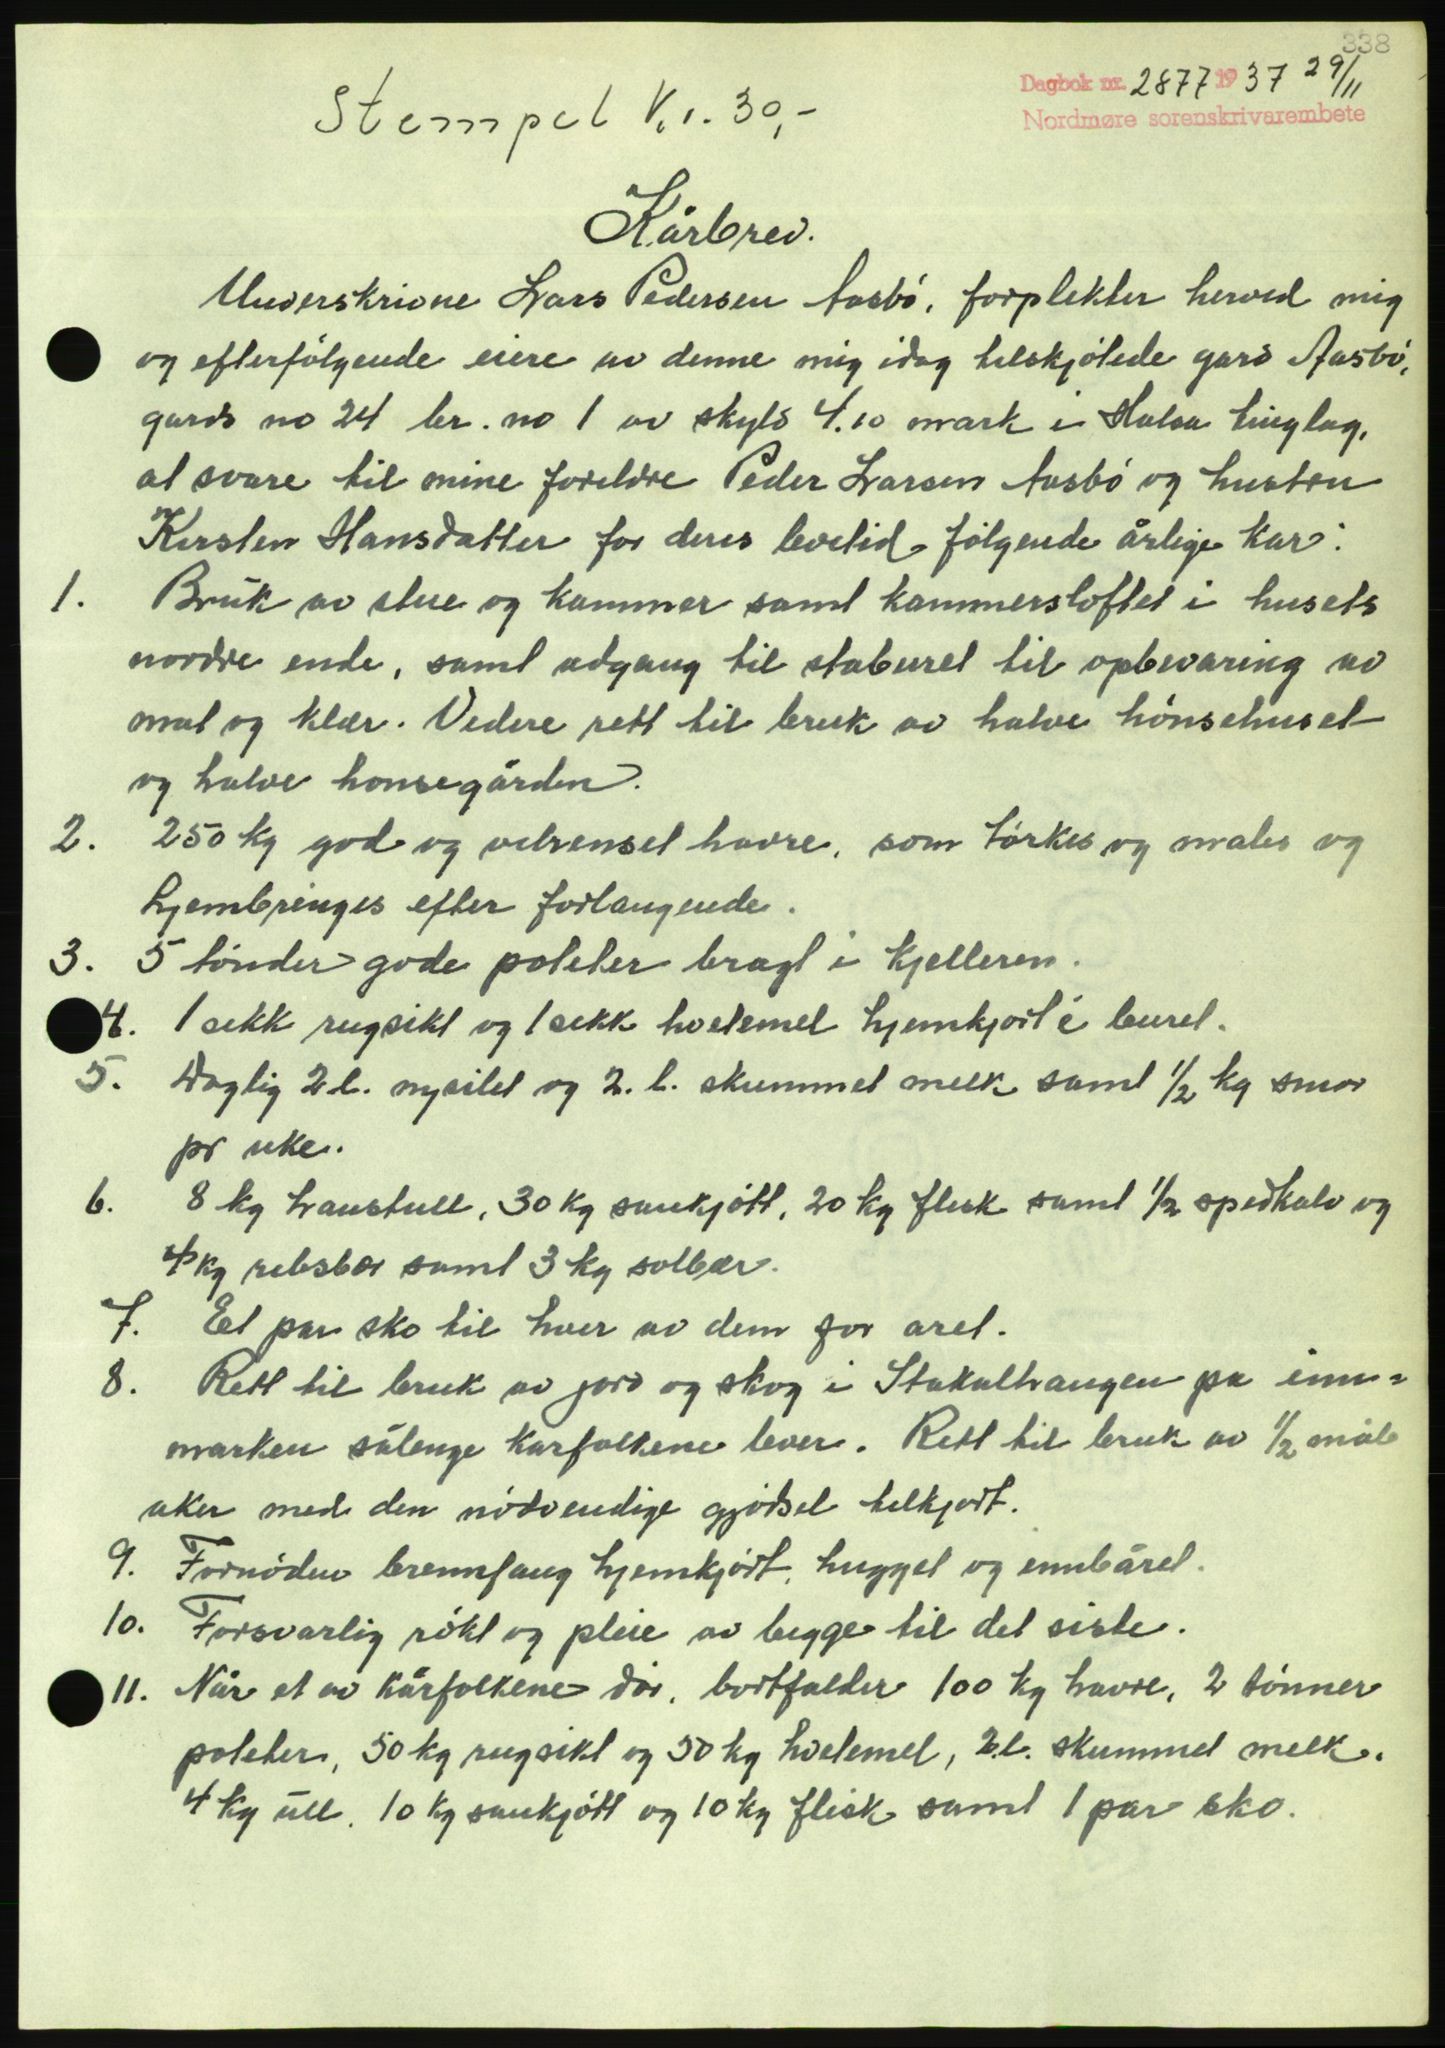 338
Dagbok nr. 2877 1937 29/11
Nordmøre sorenskrivarembete
Stempel Kr. 30,-
Kårbrev.
Underskrivne Lars Pedersen Aasbó, forplekter herved mig
og efterfølgende eiere av denne mig idag tilskjótede gard Aasbó,
gards no 24 br. no 1 av skyld 4.10 mark i Halsa tinglag,
at svare til mine foreldre Peder Larsen Aasbó og hustru
Kirsten Hansdatter for deres levetid fólgende årlige kar:
1. Bruk av stue og kammer samt kammersloftet i husets
nordre ende, samt adgang til staburet til opbevaring av
mat og klær. Videre rett til bruk av halve hónsehuset
og halve honsegården.
2. 250 kg god og velrenset havre, som tórkes og males og
hjembringes efter forlangende.
3. 5 tónder gode poteter bragt i kjelleren.
4. 1 sekk rugsikt og 1 sekk hvetemel hjemkjort i buret.
5. Daglig 2 l. nysilet og 2. l. skummet melk samt 1/2 kg smor
pr uke.
6. 8 kg haustull, 30 kg saukjótt, 20 kg flesk samt 1/2 spedkalv og
4 kg rebsbær samt 3 kg solbær.
7. Et par sko til hver av dem for aret.
8. Rett til bruk av jord og skog i Stakalhaugen pa inn=
marken sålenge karfolkene lever. Rett til bruk av 1/2 mål
aker med den nódvendige gjódsel tilkjort.
9. Fornóden brennfang hjemkjórt, hugget og innbåret.
10. Forsvarlig rókt og pleie av begge til det siste.
11. Når et av kårfolkene dór, bortfalder 100 kg havre, 2 tónner
poteter, 50 kg rugsikt og 50 kg hvetemel, 2 l. skummet melk.
4 kg ull, 10 kg saukjótt og 10 kg flesk samt 1 par sko.